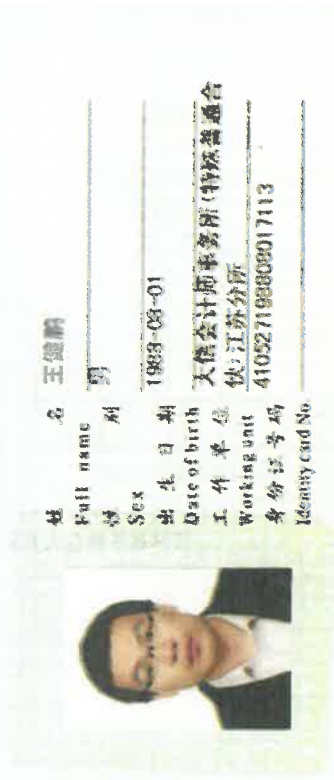 姓 名 王健鹏
Full name
性 别 男
Sex
出 生 日 期 1988-08-01
Date of birth
工 作 单 位 大信会计师事务所(特殊普通合
Working unit 伙)江苏分所
身 份 证 号 码 410527198808017113
Identity card No.